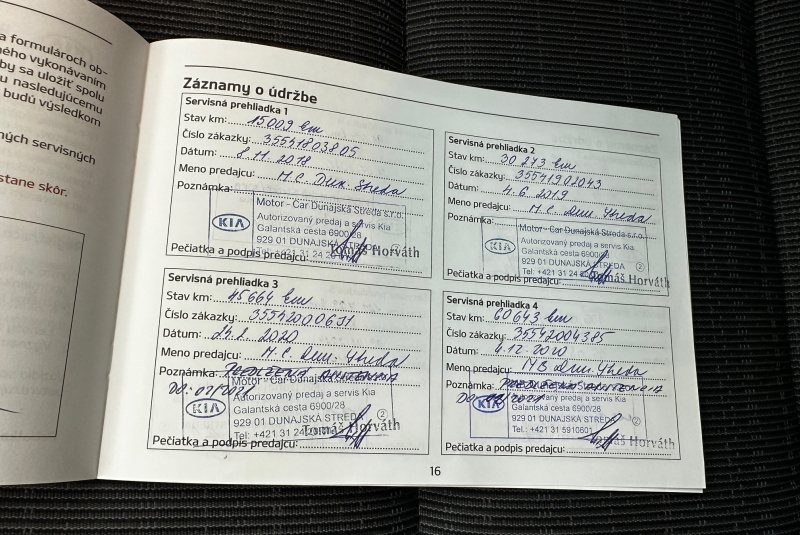 a formulároch ob-
ného vykonávaním
by sa uložiť spolu
u nasledujúcemu
budú výsledkom
ných servisných
stane skôr.
Záznamy o údržbe
Servisná prehliadka 1
Stav km: 15009 km
Číslo zákazky: 35541803805
Dátum: 8.11.2018
Meno predajcu: M.C. Dun. Streda
Poznámka:
KIA
Motor - Car Dunajská Streda s.r.o.
Autorizovaný predaj a servis Kia
Galantská cesta 6900/28
929 01 DUNAJSKÁ STREDA
Tel: +421 31 24
Tomáš Horváth
Pečiatka a podpis predajcu:
Servisná prehliadka 2
Stav km: 30273 km
Číslo zákazky: 35541902043
Dátum: 4.6.2019
Meno predajcu: M.C. Dun. Streda
Poznámka:
KIA
Motor - Car Dunajská Streda s.r.o.
Autorizovaný predaj a servis Kia
Galantská cesta 6900/28
929 01 DUNAJSKÁ STREDA
2
Tel: +421 31 24
Tomáš Horváth
Pečiatka a podpis predajcu:
Servisná prehliadka 3
Stav km: 45664 km
Číslo zákazky:
Dátum: 2020
Meno predajcu: M.C. Dun. Streda
Poznámka:
DO: 02/2021
Motor - Car Dunajská
KIA
Autorizovaný predaj a servis Kia
Galantská cesta 6900/28
929 01 DUNAJSKÁ STREDA
2
Tel: +421 31 24
Tomáš Horváth
Pečiatka a podpis predajcu:
Servisná prehliadka 4
Stav km: 60643 km
Číslo zákazky: 35542004385
Dátum: 4.12.2020
Meno predajcu: Dun. Streda
Poznámka:
KIA
Autorizovaný predaj a servis Kia
Galantská cesta 6900/28
929 01 DUNAJSKÁ STREDA
2
Tel.: +421 31 5910601
Tomáš Horváth
Pečiatka a podpis predajcu:
16